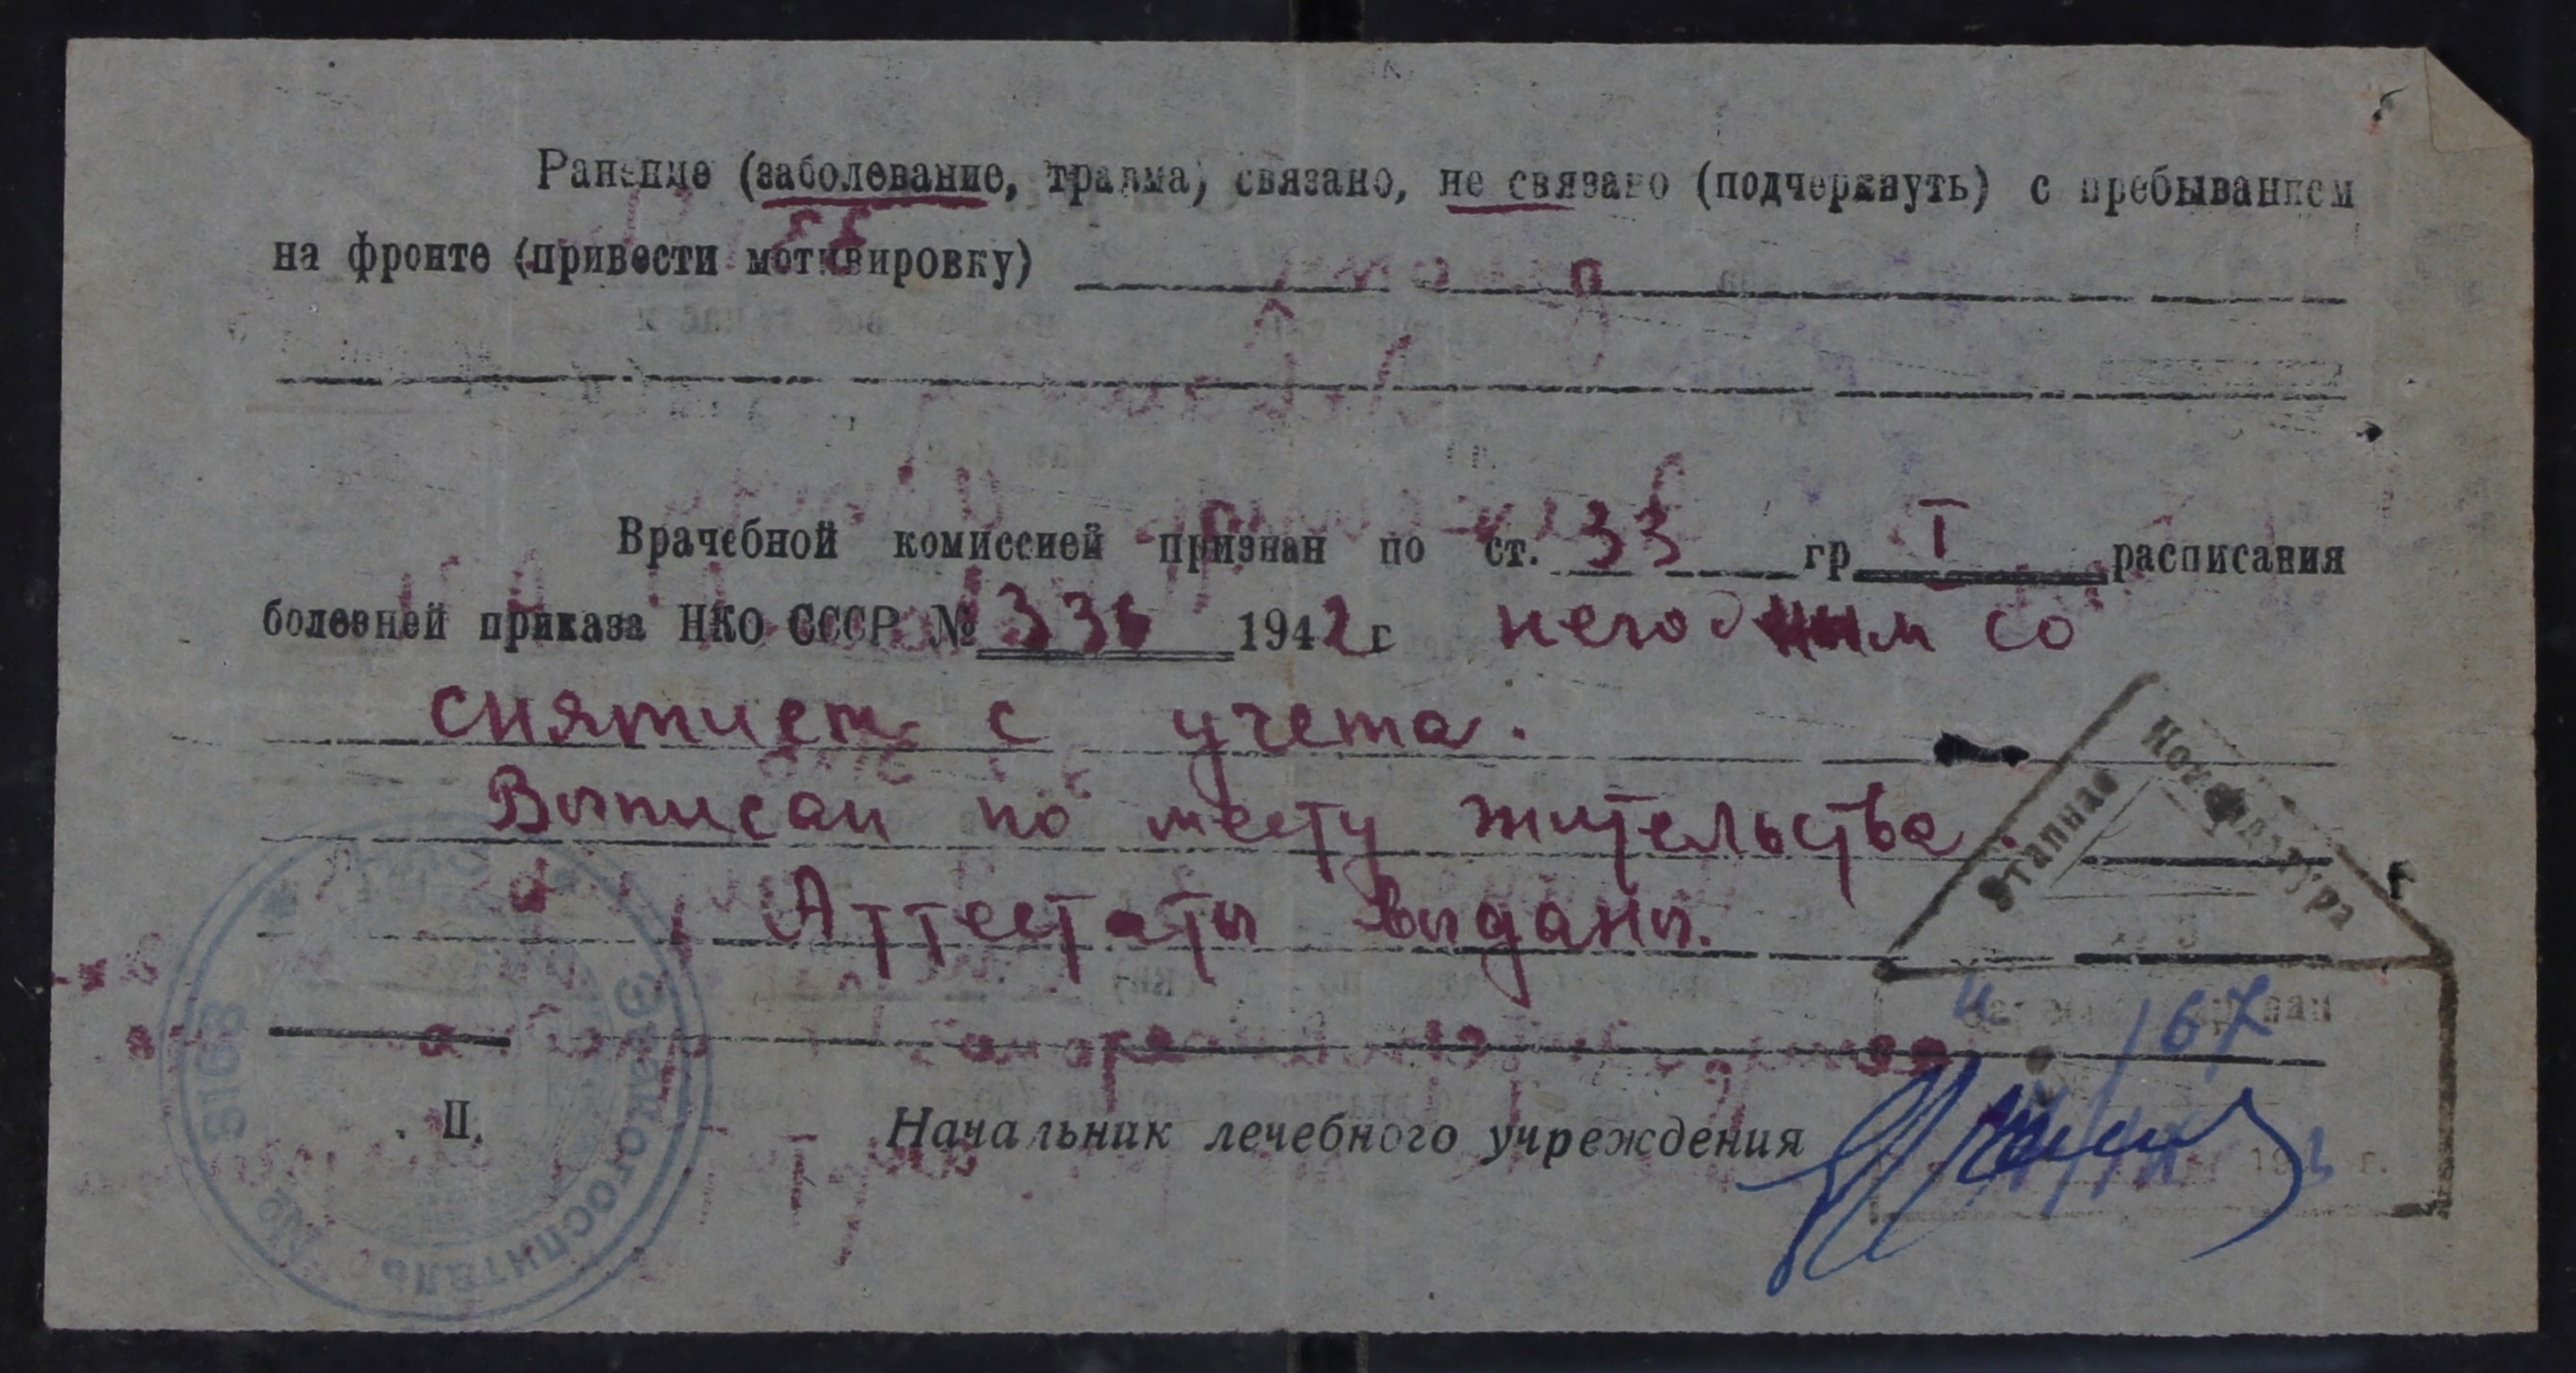 Ранение (заболевание, травма) связано, не связано (подчеркнуть) с пребыванием
на фронте (привести мотивировку)
Врачебной комиссией признан по ст. 33 гр I расписания
болезней приказа НКО СССР № 336 1942 г негодным со
снятием с учета.
Выписан по месту жительства.
Аттестаты выданы.
Этапная Комендатура
167
П.
Начальник лечебного учреждения
Эвакогоспиталь №